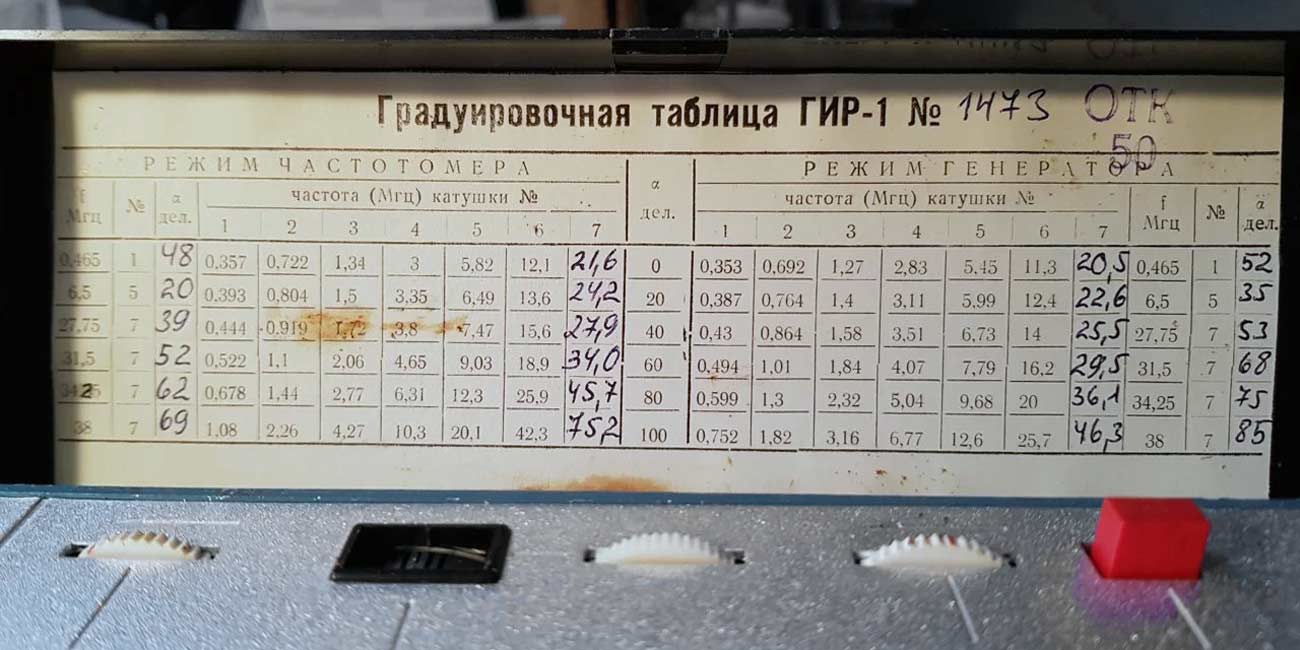 Градуировочная таблица ГИР-1 № 1473 ОТК
50
РЕЖИМ ЧАСТОТОМЕРА α дел. РЕЖИМ ГЕНЕРАТОРА
f Мгц № α дел. частота (Мгц) катушки № частота (Мгц) катушки № f Мгц № α дел.
1 2 3 4 5 6 7 1 2 3 4 5 6 7
0,465 1 48 0,357 0,722 1,34 3 5,82 12,1 21,6 0 0,353 0,692 1,27 2,83 5,45 11,3 20,5 0,465 1 52
6,5 5 20 0,393 0,804 1,5 3,35 6,49 13,6 24,2 20 0,387 0,764 1,4 3,11 5,99 12,4 22,6 6,5 5 35
27,75 7 39 0,444 0,919 1,72 3,8 7,47 15,6 27,9 40 0,43 0,864 1,58 3,51 6,73 14 25,5 27,75 7 53
31,5 7 52 0,522 1,1 2,06 4,65 9,03 18,9 34,0 60 0,494 1,01 1,84 4,07 7,79 16,2 29,5 31,5 7 68
7 62 0,678 1,44 2,77 6,31 12,3 25,9 45,7 80 0,599 1,3 2,32 5,04 9,68 20 36,1 34,25 7 75
38 7 69 1,08 2,26 4,27 10,3 20,1 42,3 75,2 100 0,752 1,82 3,16 6,77 12,6 25,7 46,3 38 7 85